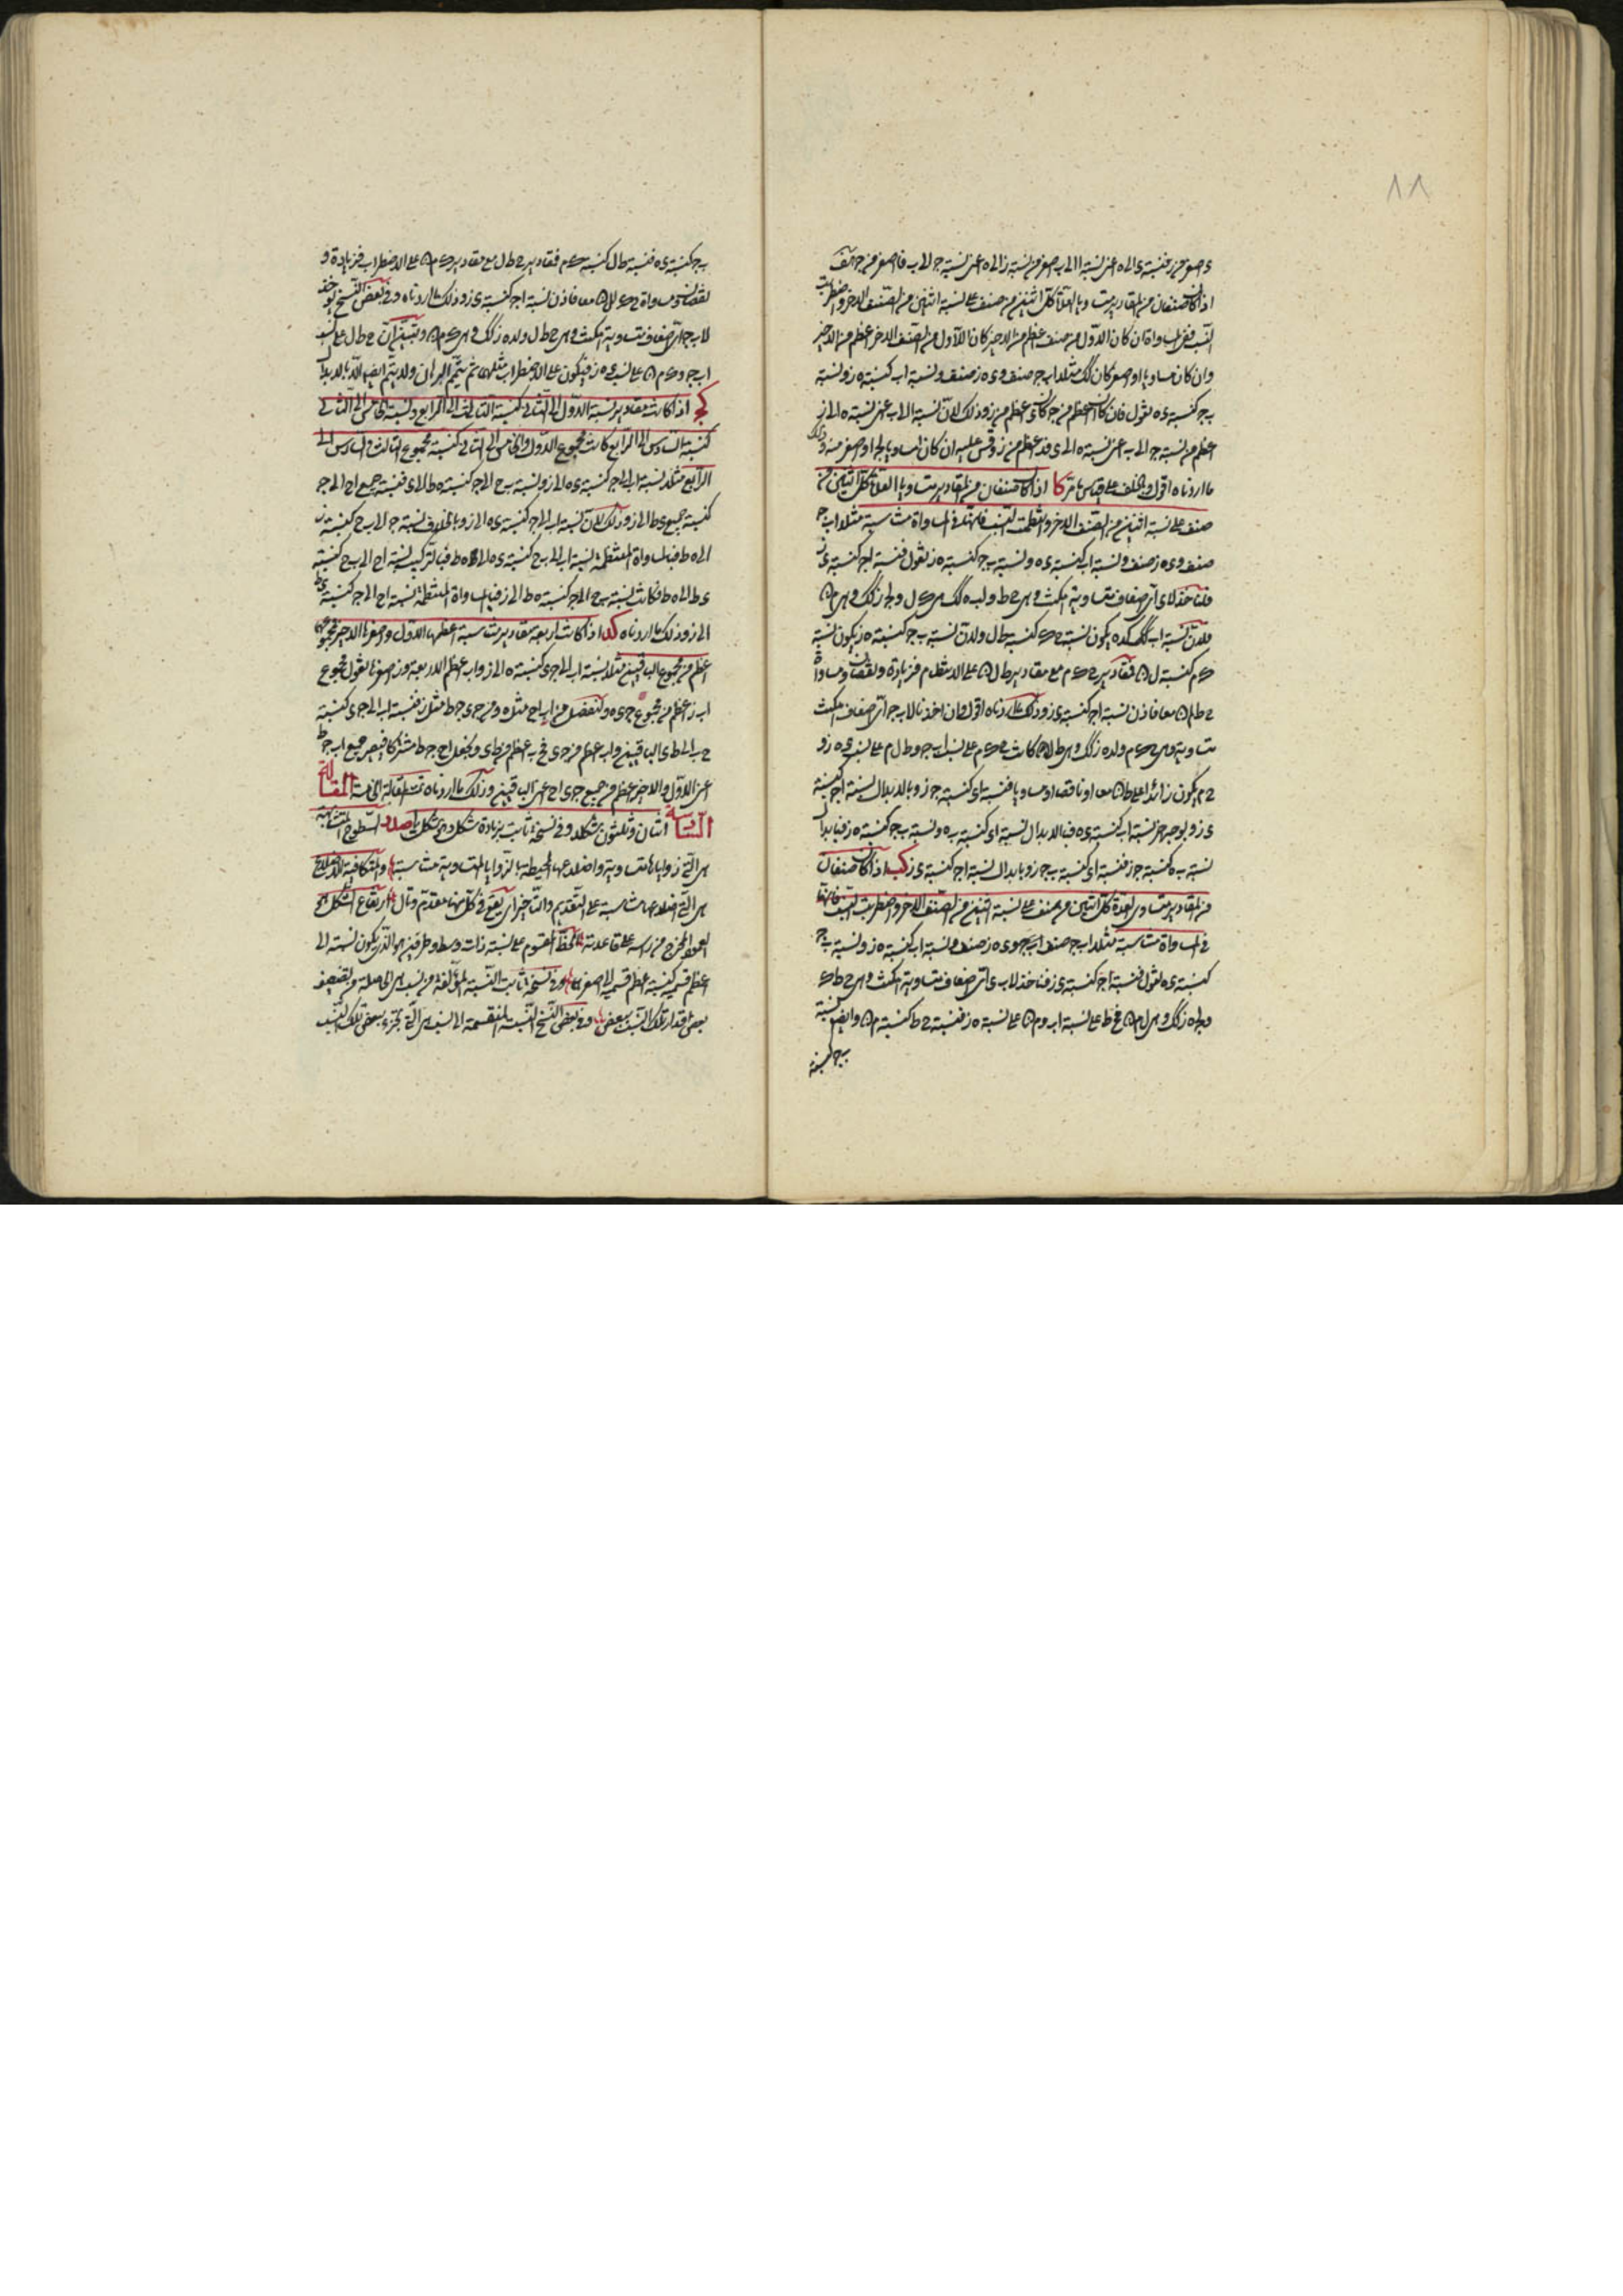 ١٨
ى اصغر من ز فنسبة ى الى ه اعنى نسبة ا الى ب اصغر من نسبة ز الى ه اعنى نسبة ج الى ب فا اصغر من ج هف
اذا كان صنفان من المقادير متساويا العدة كل اثنين من صنف على نسبة اثنين من الصنف الاخر واضطربت
النسب ففى المساواة ان كان الاول من صنف اعظم من الاخير كان الاول من الصنف الاخر اعظم من الاخير
وان كان مساويا او اصغر كان كذلك مثلا ا ب ج صنف و ى ه ز صنف ونسبة ا ب كنسبة ه ز ونسبة
ب ج كنسبة ى ه نقول فان كان ا اعظم من ج كان ى اعظم من ز وذلك لان نسبة ا الى ب اعنى نسبة ه الى ز
اعظم من نسبة ج الى ب اعنى نسبة ه الى ى فى اعظم من ز وقس عليه ان كان ا مساويا لج او اصغر منه وذلك
ما اردناه اقول وبالخلف على قياس ما مر كا اذا كان صنفان من المقادير متساويا العدة كل اثنين من
صنف على نسبة اثنين من الصنف الاخر وانتظمت النسب فانها فى المساواة متناسبة مثلا ا ب ج
صنف و ى ه ز صنف ونسبة ا ب كنسبة ى ه ونسبة ب ج كنسبة ه ز نقول فنسبة ا ج كنسبة ى ز
فلنأخذ لا ى اى اضعاف متساوية امكنت وهى ح ط ولب ه كذلك وهى ك ل ولج ز كذلك وهى م ن
فلان نسبة ا ب كذلك كى ه يكون نسبة ح ك كنسبة ط ل ولان نسبة ب ج كنسبة ه ز يكون نسبة
ك م كنسبة ل ن فمقادير ح ك م مع مقادير ط ل ن على الانتظام فى زيادة ونقصان ومساواة
ح ط م ن معا فاذن نسبة ا ج كنسبة ى ز وذلك ما اردناه اقول وان اخذنا لا ب ج اى اضعاف امكنت
متساوية وهى ح ك م ولى ه ز كذلك وهى ط ل ن كانت ح ك م على نسب ا ب ج و ط ل ن على نسب ى ه ز و
ح م يكون زائدا على ط ن معا او ناقصا او مساويا فنسبة ا ى كنسبة ج ز وبالابدال نسبة ا ج كنسبة
ى ز وبوجه اخر نسبة ا ب كنسبة ى ه فبالابدال نسبة ا ى كنسبة ب ه ونسبة ب ج كنسبة ه ز فبابدال
نسبة ب ه كنسبة ج ز فنسبة ا ى كنسبة ج ز وبابدال نسبة ا ج كنسبة ى ز كب اذا كان صنفان
من المقادير متساوى العدة كل اثنين من صنف على نسبة اثنين من الصنف الاخر واضطربت النسب فانها
فى المساواة متناسبة مثلا ا ب ج صنف و ى ه ز صنف ونسبة ا ب كنسبة ه ز ونسبة ب ج
كنسبة ى ه نقول فنسبة ا ج كنسبة ى ز فنأخذ لا ب ى اى اضعاف متساوية امكنت وهى ح ط ك
ولج ه ز كذلك وهى ل م ن فح ط على نسبة ا ب و م ن على نسبة ه ز فنسبة ح ط كنسبة م ن وايضا نسبة
ب ج كنسبة
ب ج كنسبة ى ه فنسبة ط ل كنسبة ك م فمقادير ح ط ل مع مقادير ك م ن على الاضطراب فى زيادة و
نقصان ومساواة ح ك لل ن معا فاذن نسبة ا ج كنسبة ى ز وذلك ما اردناه وفى بعض النسخ يؤخذ
لا ب ج اى اضعاف متساوية امكنت وهى ح ط ل ولى ه ز كذلك وهى ك م ن ويتبين ان ح ط ل على نسب
ا ب ج و ك م ن على نسب ى ه ز فيكون على الاضطراب مثلها ثم يتم البرهان ولا يتم ايضا الا بالابدال
كج اذا كانت مقادير نسبة الاول الى الثانى كنسبة الثالث الى الرابع ونسبة الخامس الى الثانى
كنسبة السادس الى الرابع كانت نسبة مجموع الاول والخامس الى الثانى كنسبة مجموع الثالث والسادس الى
الرابع مثلا نسبة ا ب الى ج كنسبة ى ه الى ز ونسبة ب ح الى ج كنسبة ه ط الى ز فنسبة جميع ا ح الى ج
كنسبة جميع ى ط الى ز وذلك لان نسبة ا ب الى ج كنسبة ى ه الى ز وبالخلاف نسبة ج الى ب ح كنسبة ز
الى ه ط فبالمساواة المنتظمة نسبة ا ب الى ب ح كنسبة ى ه الى ه ط فبالتركيب نسبة ا ح الى ب ح كنسبة
ى ط الى ه ط وكانت نسبة ب ح الى ج كنسبة ه ط الى ز فبالمساواة المنتظمة نسبة ا ح الى ج كنسبة ى ط
الى ز وذلك ما اردناه كد اذا كانت اربعة مقادير متناسبة اعظمها الاول واصغرها الاخير فمجموعهما
اعظم من مجموع الباقيين مثلا نسبة ا ب الى ج ى كنسبة ه الى ز وا ب اعظم الاربعة وز اصغرها نقول مجموع
ا ب ز اعظم من مجموع ج ى ه ولنفصل من ا ب ا ح مثل ه ومن ج ى ج ط مثل ز فنسبة ا ب الى ج ى كنسبة
ح ب الى ط ى الباقيين وا ب اعظم من ج ى فح ب اعظم من ط ى ونجعل ا ح ج ط مشتركا فيصير جميع ا ب ج ط
اعنى الاول والاخير اعظم من جميع ج ى ا ح اعنى الباقيين وذلك ما اردناه تمت المقالة الخامسة المقالة
السادسة اثنان وثلثون شكلا وفى نسخة ثابت بزيادة شكل وهى شكل يا صدر السطوح المتشابهة
هى التى زواياها متساوية واضلاعها المحيطة بالزوايا المتساوية متناسبة والمتكافية الاضلاع
هى التى اضلاعها متناسبة على التقديم والتاخير اى يقع فى كل منها مقدم وتال ارتفاع الشكل هو
العمود المخرج من راسه على قاعدته الخط المقسوم على نسبة ذات وسط وطرفين هو الذى يكون نسبته الى
اعظم قسميه كنسبة اعظم قسميه الى اصغرهما وفى نسخة ثابت النسبة المؤلفة من نسب هى الحاصلة من تضعيف
بعض اقدار تلك النسب ببعض وفى بعض النسخ النسبة المنقسمة الى نسب هى التى تجزى ببعض تلك النسب